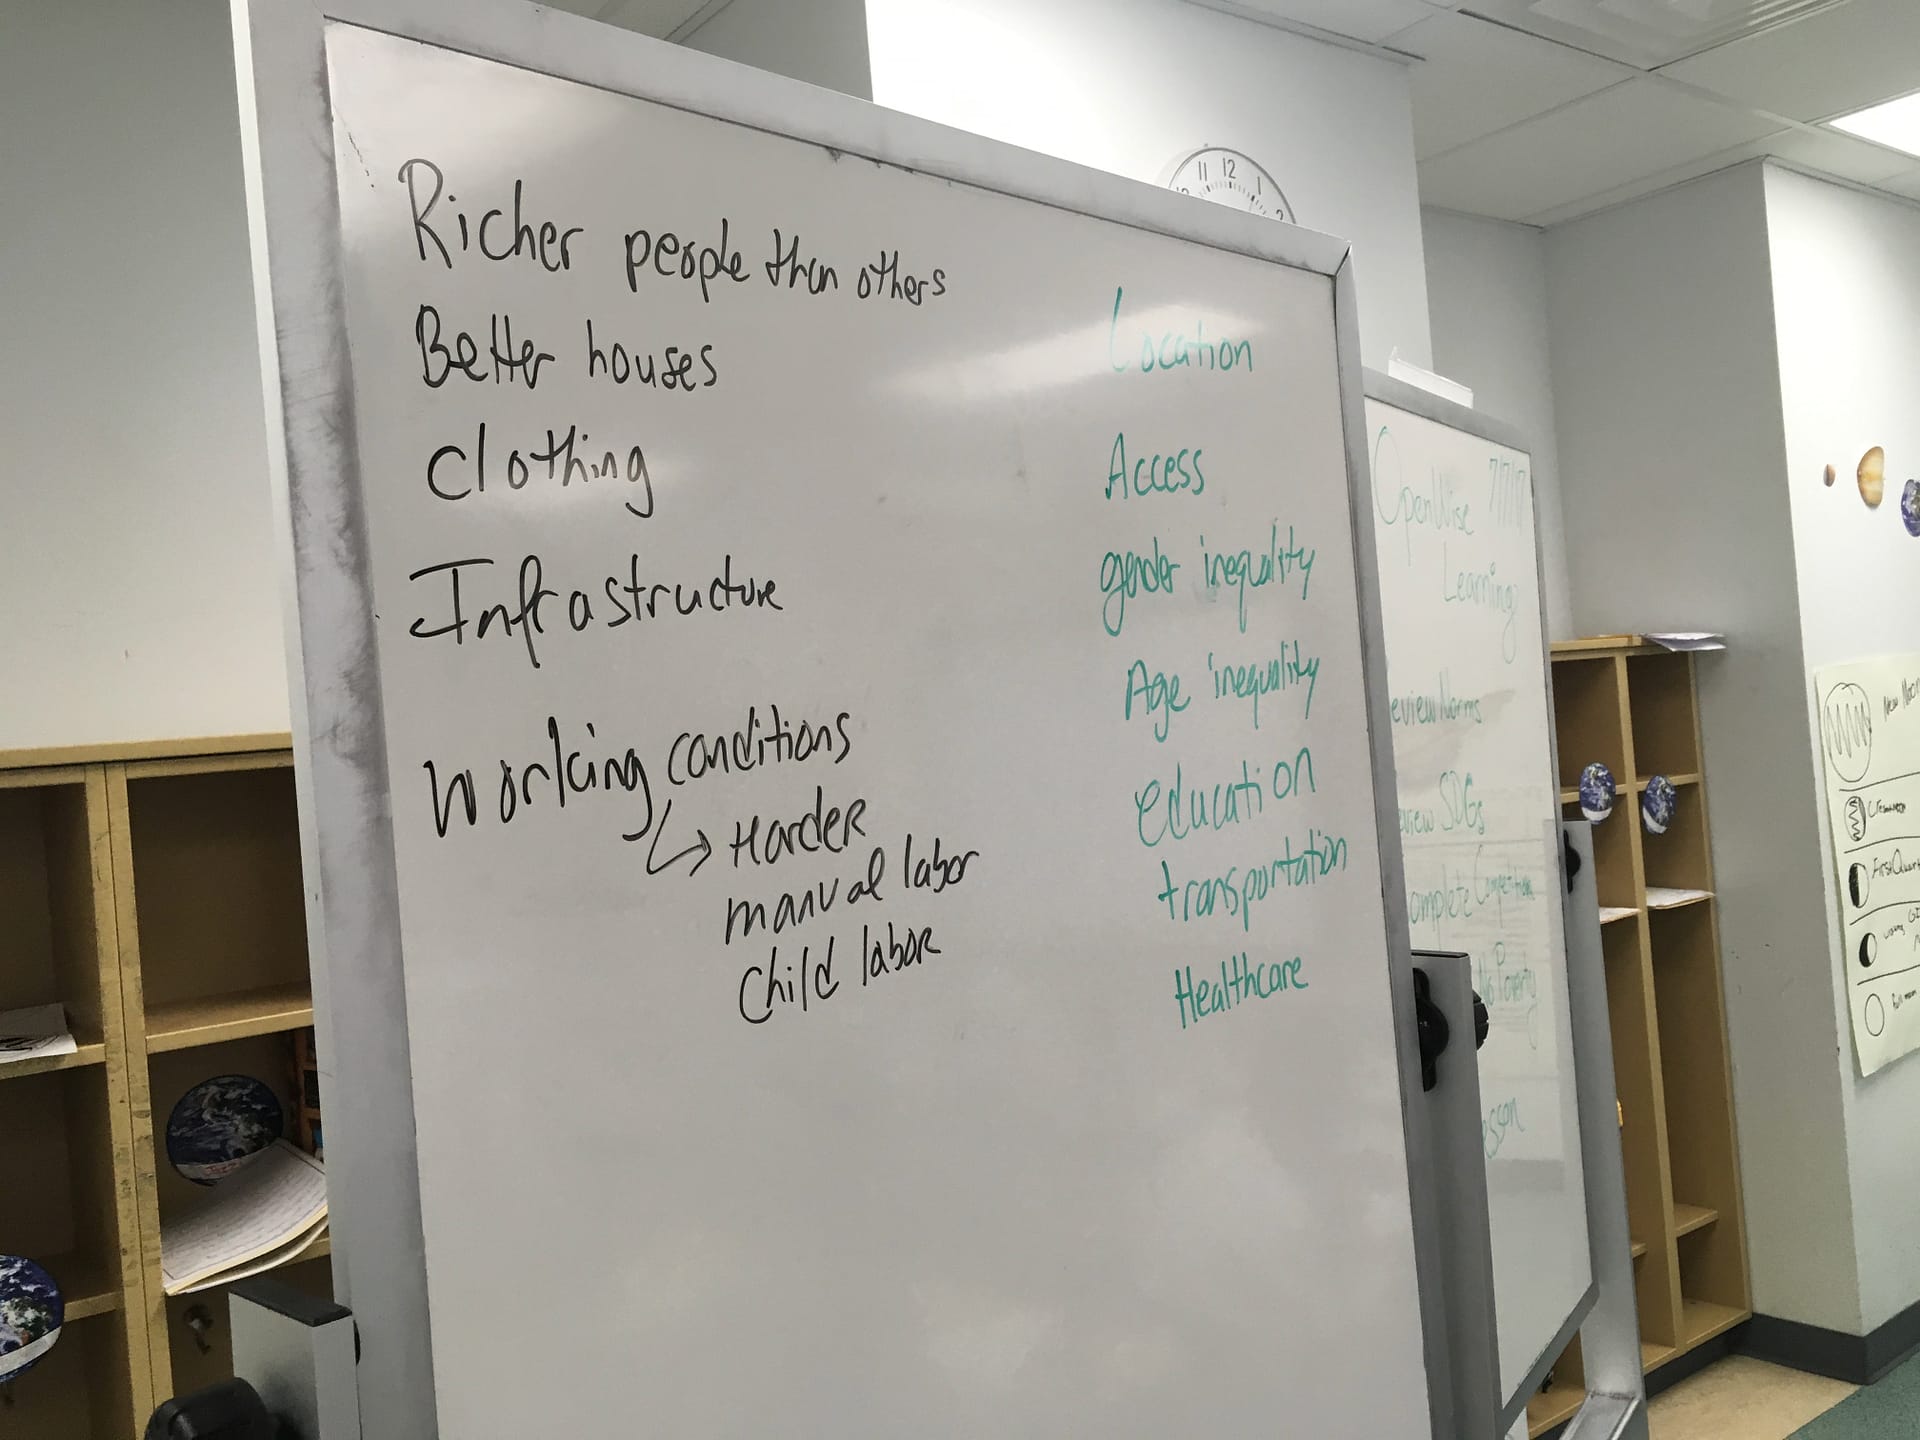 Richer people than others
Better houses
Clothing
Infrastructure
Working conditions
↳ Harder
manual labor
Child labor
Location
Access
gender inequality
Age inequality
education
transportation
Healthcare
OpenWise 7/7/17
Learning
eview Norms
eview SDGs
omplete Competition
No Poverty
esson
11 12 1
2
New Moon
Crescent
First Quart
full moon